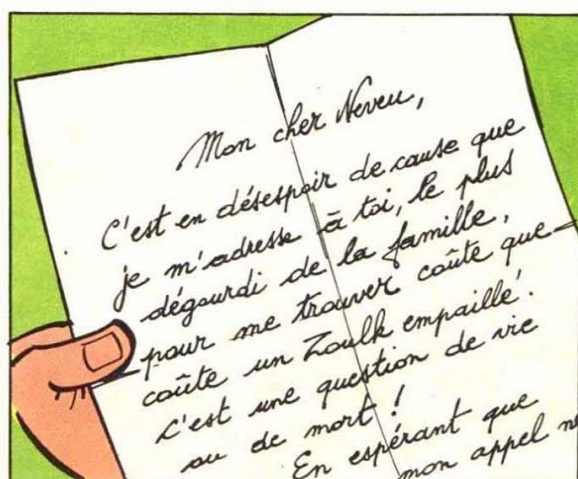 Mon cher Neveu,
C'est en désespoir de cause que
je m'adresse à toi, le plus
dégourdi de la famille,
pour me trouver coûte que
coûte un Zoulk empaillé.
C'est une question de vie
ou de mort !
En espérant que
mon appel ne